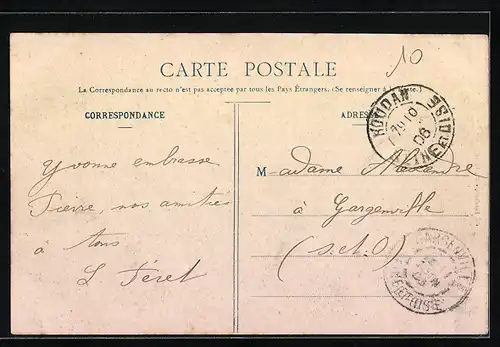 10
CARTE POSTALE
La Correspondance au recto n'est pas acceptée par tous les Pays Étrangers. (Se renseigner à la Poste.)
CORRESPONDANCE
ADRES
HOUDAN
10
06
SEINE
Yvonne embrasse
Pierre, nos amitiés
à tous
L Féret
M-adame Alexandre
à Gargenville
(S.et.O)
GARGENVILLE